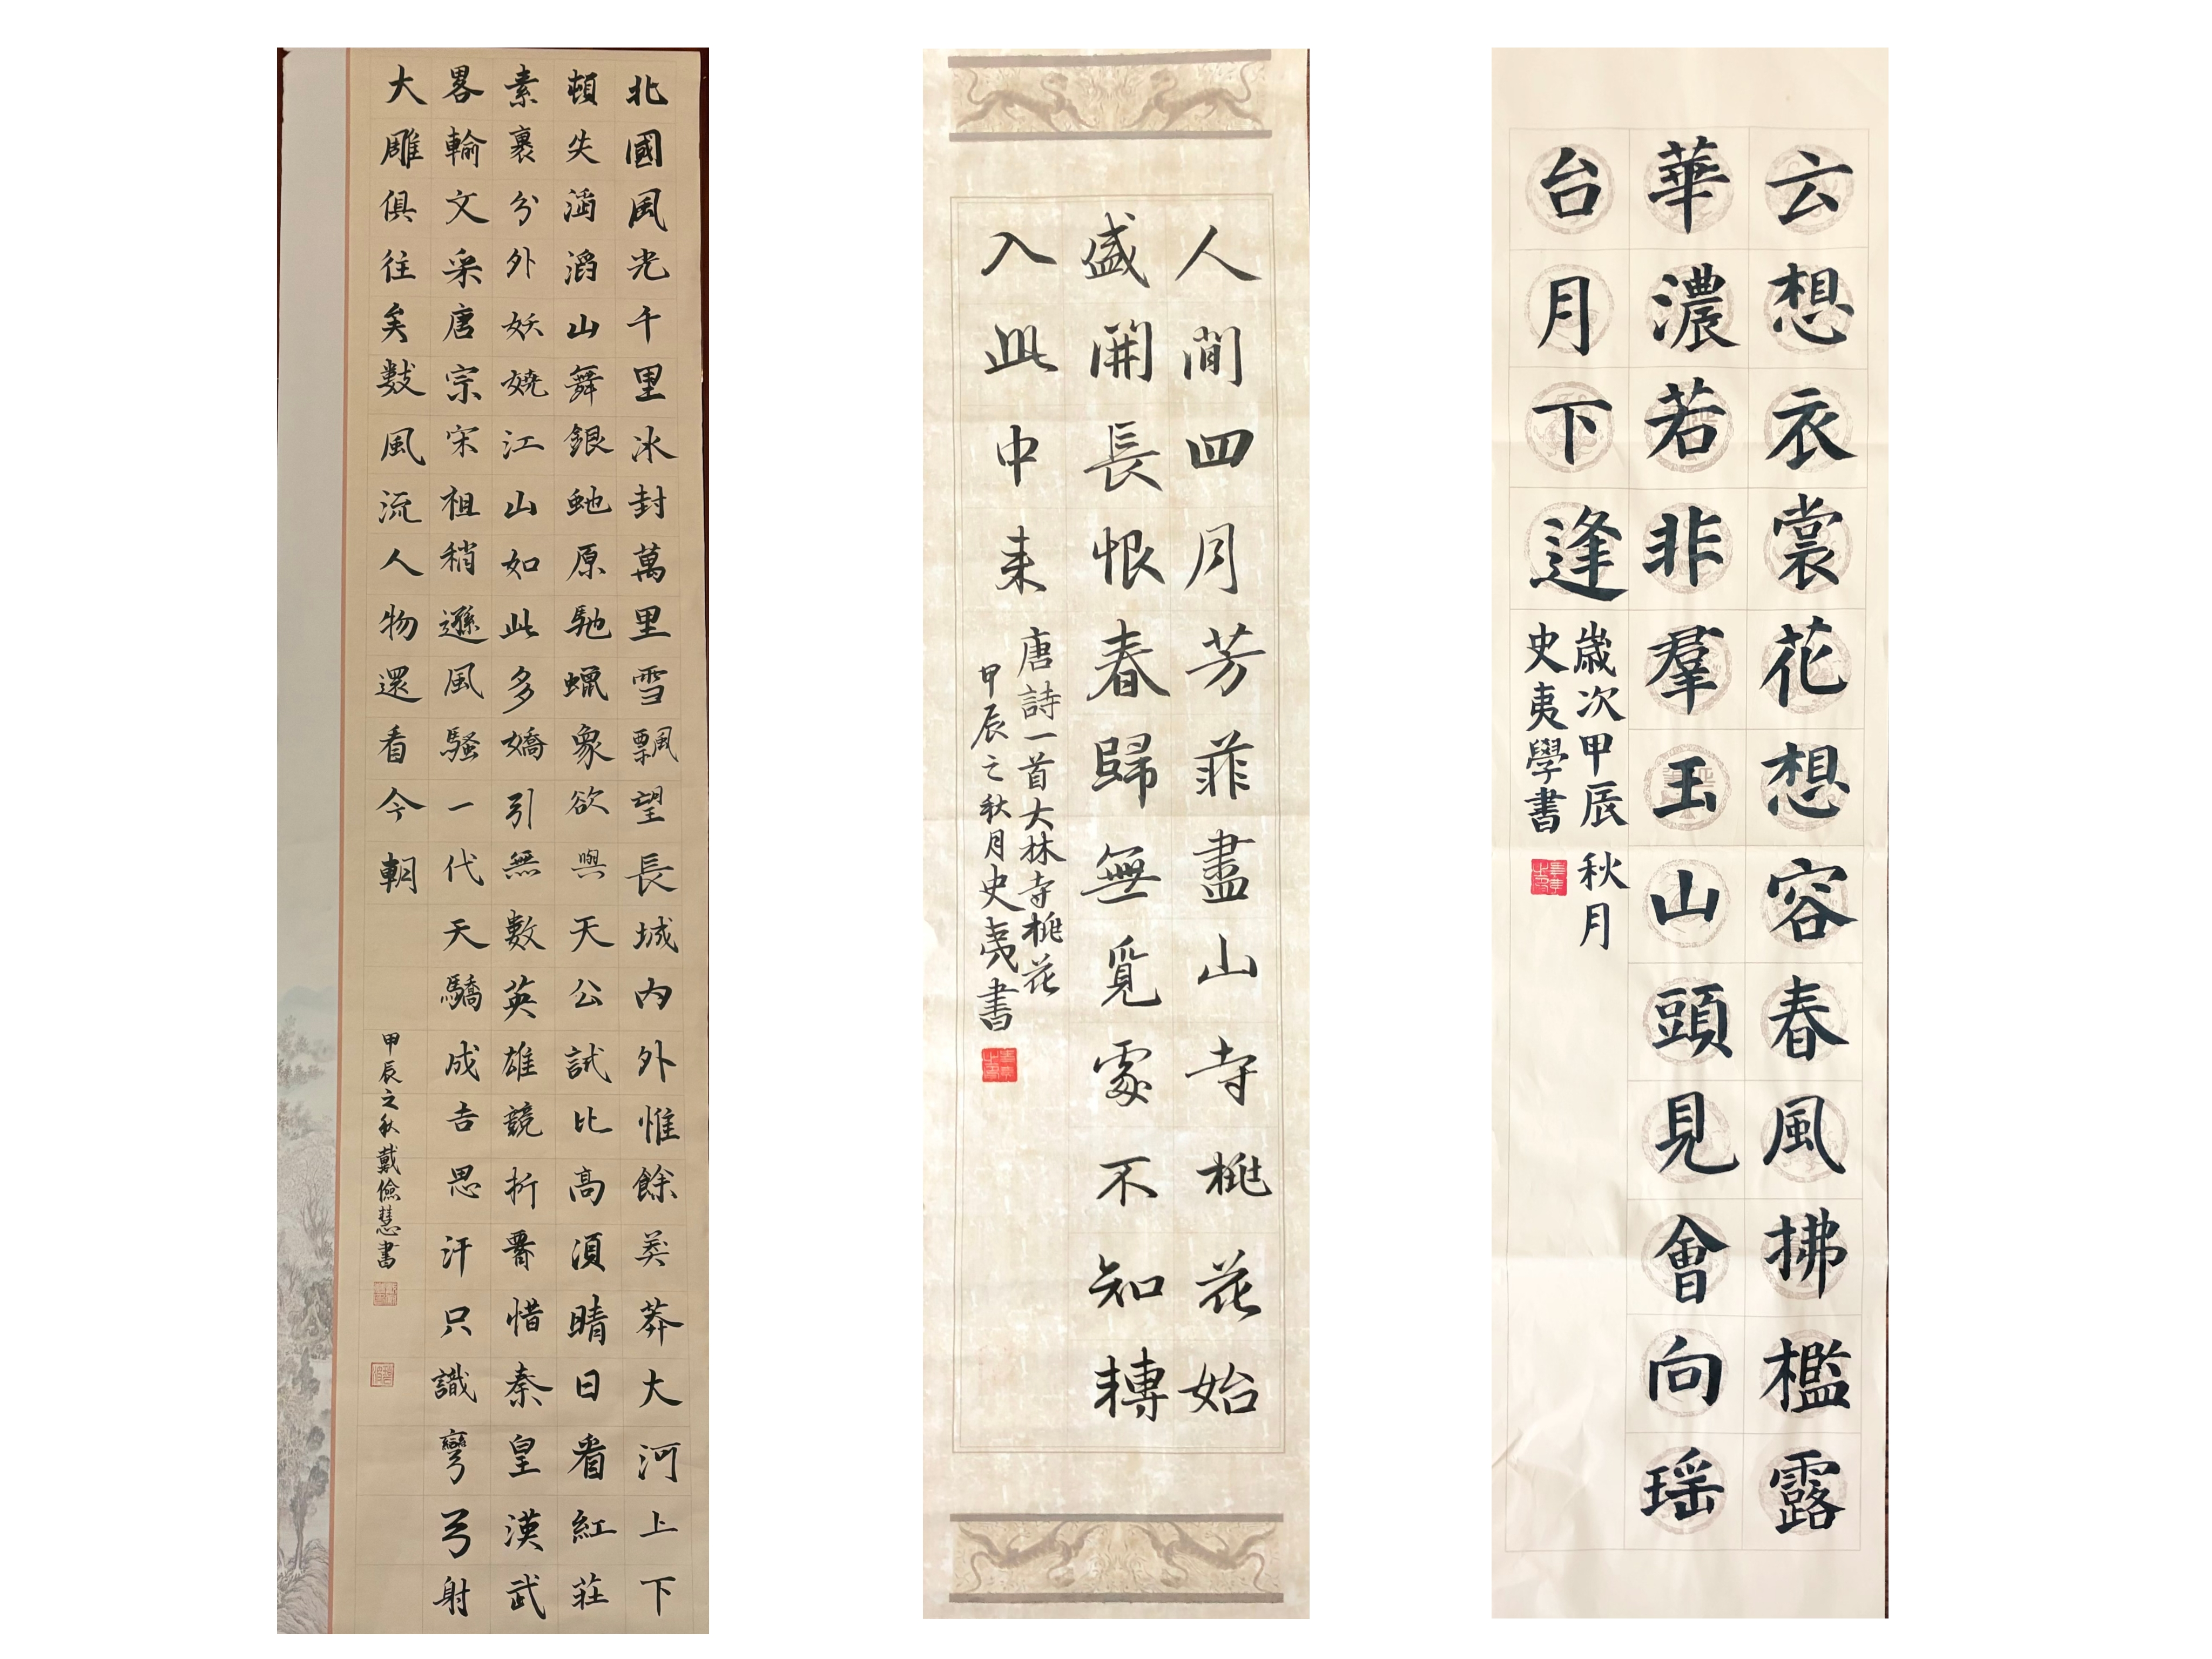 北國風光千里冰封萬里雪飄望長城內外惟餘莽莽大河上下
頓失滔滔山舞銀虵原馳蠟象欲與天公試比高須晴日看紅莊
素裹分外妖嬈江山如此多嬌引無數英雄競折署惜秦皇漢武
畧輸文采唐宗宋祖稍遜風騷一代天驕成吉思汗只識彎弓射
大雕俱往矣數風流人物還看今朝
甲辰之秋戴儉慧書
人間四月芳菲盡山寺桃花始
盛開長恨春歸無覓處不知轉
入此中来
唐詩一首大林寺桃花
甲辰之秋月史夷書
云想衣裳花想容春風拂檻露
華濃若非羣玉山頭見會向瑶
台月下逢
歲次甲辰秋月
史夷學書